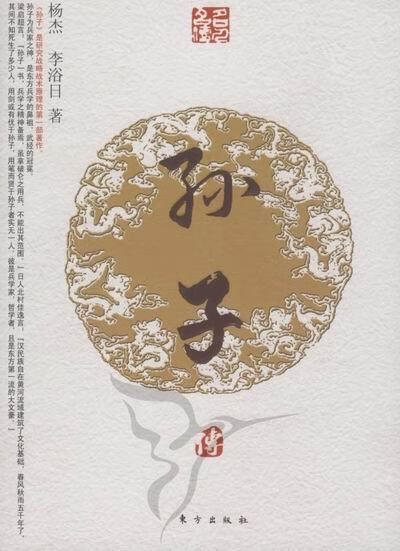 孙子
傳
杨杰 李浴日 著
《孙子》是研究战略战术原理的第一部著作,
孙子为兵家之神,是东方兵学的鼻祖,武经的冠冕。
梁启超言,「孙子一书,兵学之精神备焉,虽拿破仑之用兵,不能出其范围。」日人北村佳逸言,「汉民族自在黄河流域建筑了文化基础,春风秋雨五千年了,
其间不知死生了多少人,用剑或有优于孙子,用笔而贤于孙子者实无一人,彼是兵学家,哲学者,且是东方第一流的大文豪。」
东方出版社